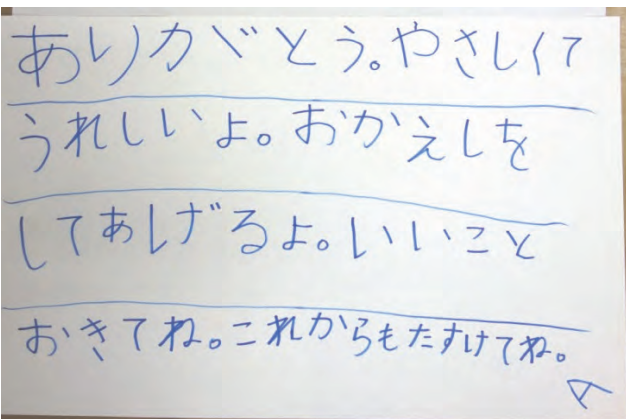 ありがとう。やさしくて
うれしいよ。おかえしを
してあげるよ。いいこと
おきてね。これからもたすけてね。
A